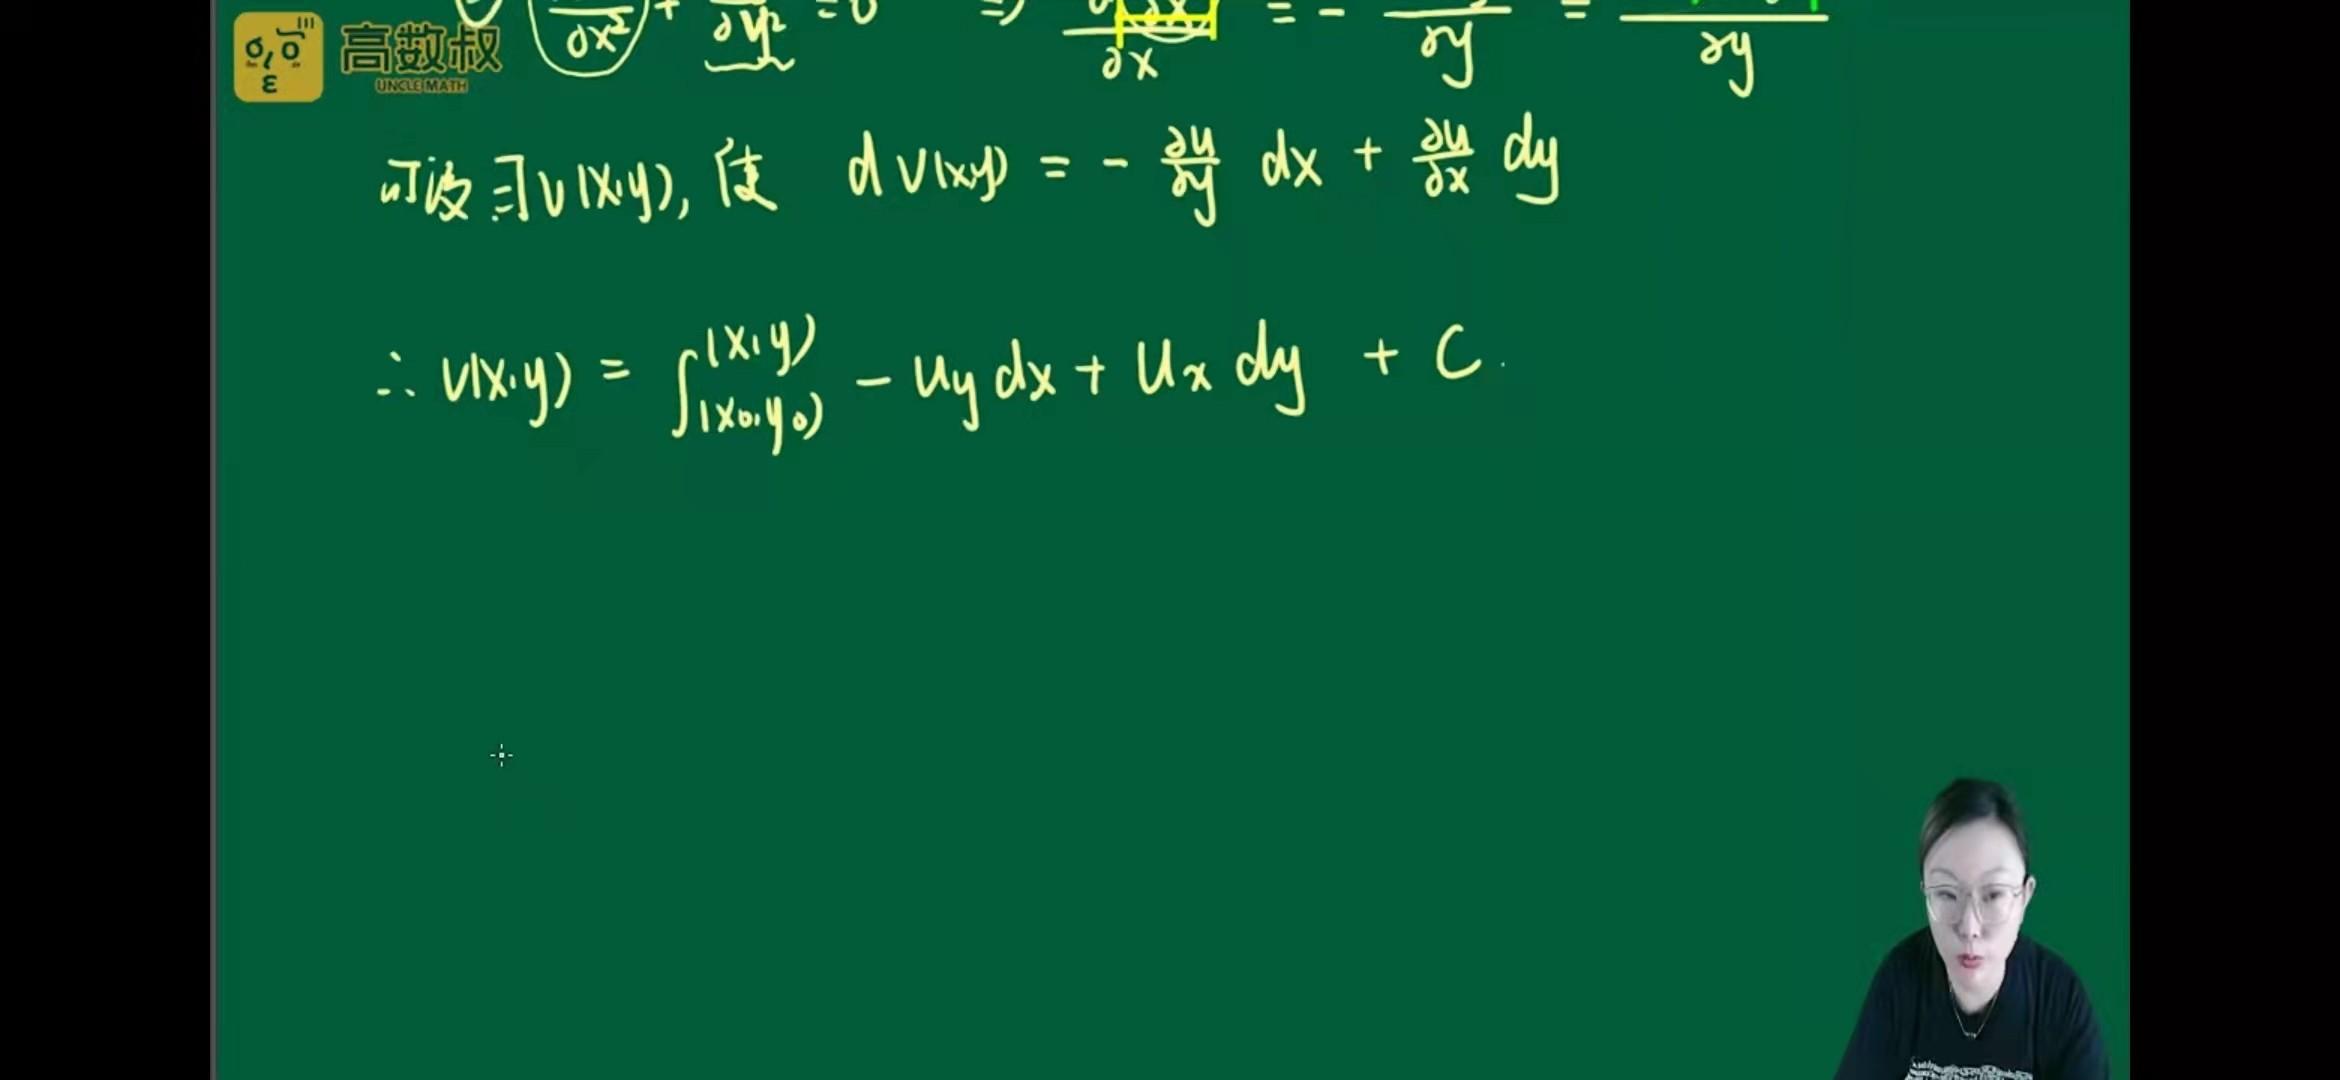 高数叔
UNCLE MATH
∂x² + ∂y² = 0 ⇒ ∂x = - ∂y = ∂y
可设∃v(x,y), 使 dv(x,y) = - ∂u/∂y dx + ∂u/∂x dy
∴ v(x,y) = ∫_(x₀,y₀)^(x,y) - u_y dx + u_x dy + C.